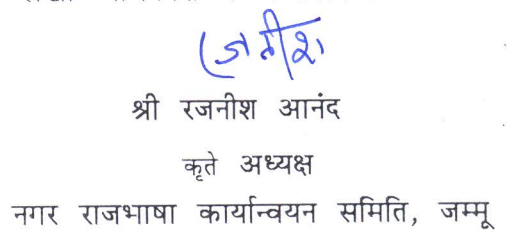 रजनीश
श्री रजनीश आनंद
कृते अध्यक्ष
नगर राजभाषा कार्यान्वयन समिति, जम्मू